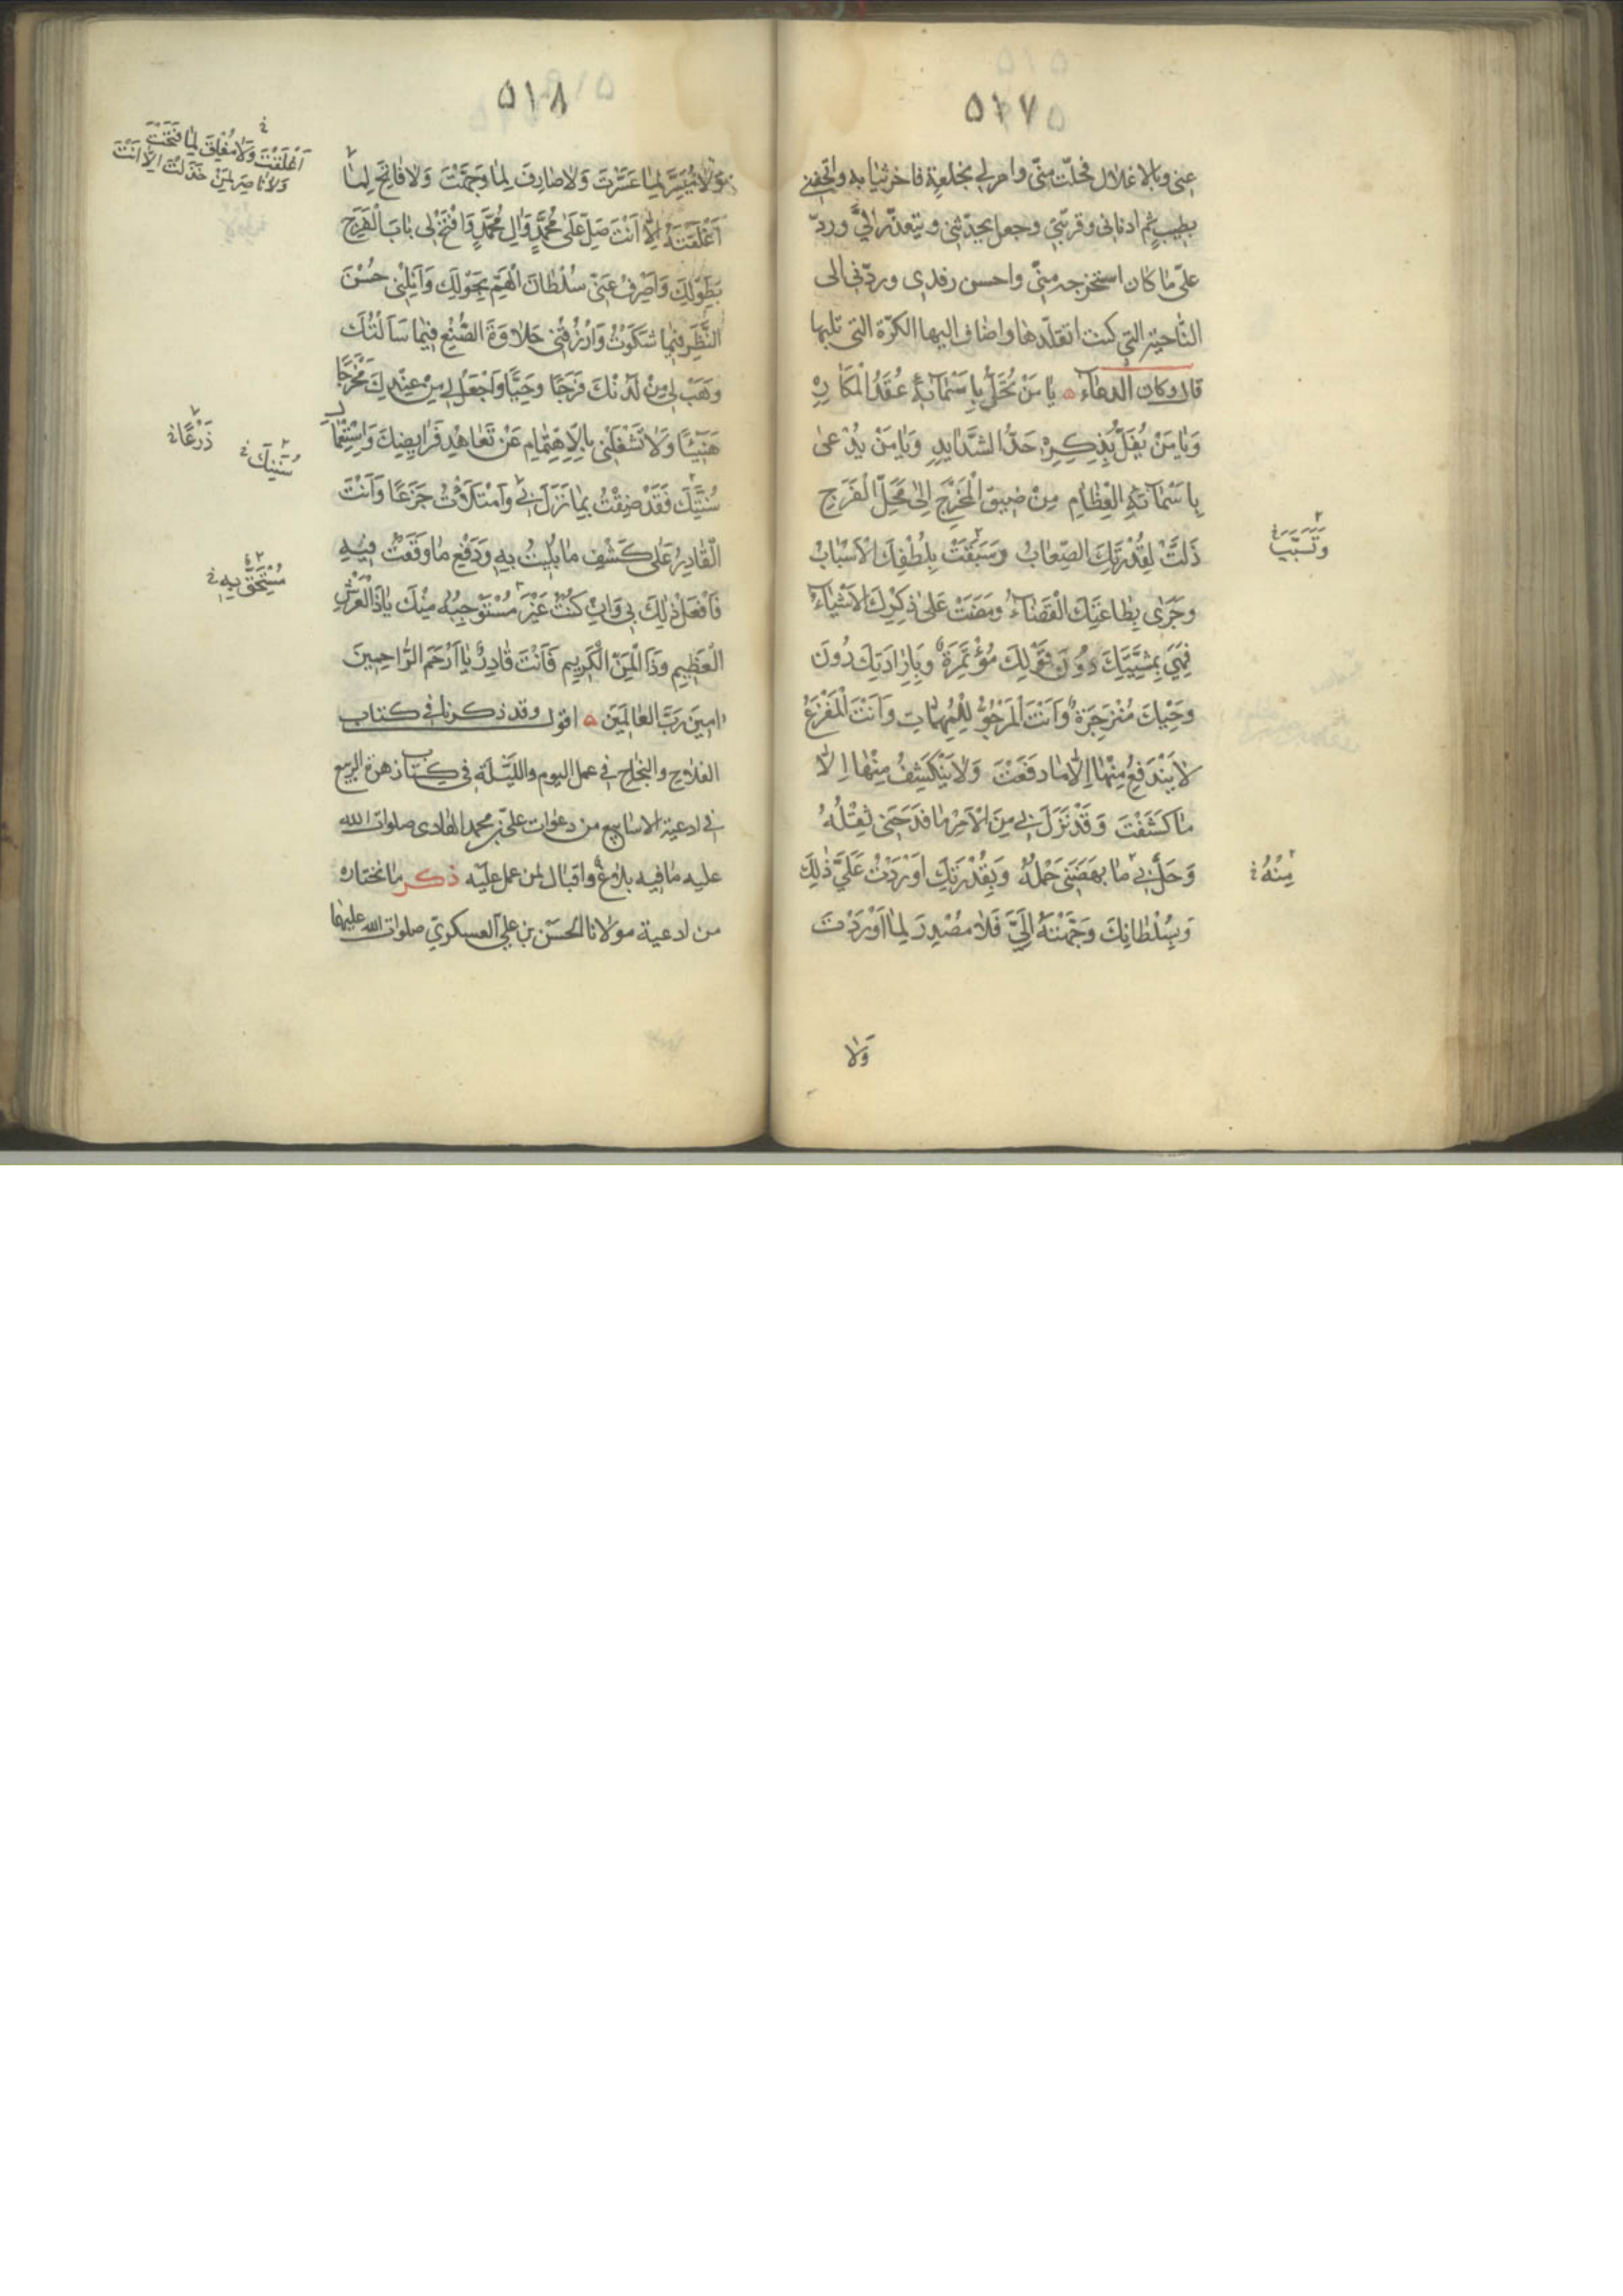 ٥١٧
عنى وبالاغلال فحلّت منّى وامر لى بخلعة فاخر ثيابه واتحفنى
بطيب ثم ادنانى وقربنى وجعل يحدثنى ويتعذّر الىّ وردّ
علىّ ما كان استخرجه منّى واحسن رفدى وردّنى الى
الناحية التى كنت اتقلّدها واضاف اليها الكرّة التى تليها
قال وكان الدعاء يٰا مَنْ تُحَلُّ بِاَسْمٰائِهِ عُقَدُ الْمَكٰارِهِ
وَيٰا مَنْ يُفَلُّ بِذِكْرِهِ حَدُّ الشَّدٰايِدِ وَيٰا مَنْ يُدْعىٰ
بِاَسْمٰائِهِ الْعِظٰامِ مِنْ ضِيقِ الْمَخْرَجِ اِلىٰ مَحَلِّ الْفَرَجِ
ذَلَّتْ لِقُدْرَتِكَ الصِّعٰابُ وَسَبَقَتْ بِلُطْفِكَ الْاَسْبٰابُ
وَتَسَبَّبَتْ
وَجَرىٰ بِطٰاعَتِكَ الْقَضٰاءُ وَمَضَتْ عَلىٰ ذِكْرِكَ الْاَشْيٰاءُ
فَهِىَ بِمَشِيَّتِكَ دُونَ قَوْلِكَ مُؤْتَمِرَةٌ وَبِاِرٰادَتِكَ دُونَ
وَحْيِكَ مُنْزَجِرَةٌ وَاَنْتَ الْمَرْجُوُّ لِلْمُهِمّٰاتِ وَاَنْتَ الْمَفْزَعُ
لٰا يَنْدَفِعُ مِنْهٰا اِلّٰا مٰا دَفَعْتَ وَلٰا يَنْكَشِفُ مِنْهٰا اِلّٰا
مٰا كَشَفْتَ وَقَدْ نَزَلَ بِى مِنَ الْاَمْرِ مٰا فَدَحَنِى ثِقْلُهُ
وَحَلَّ بِى مٰا بَهَضَنِى حَمْلُهُ وَبِقُدْرَتِكَ اَوْرَدْتَ عَلَىَّ ذٰلِكَ
مِنْهُ
وَبِسُلْطٰانِكَ وَجَّهْتَهُ اِلَىَّ فَلٰا مُصْدِرَ لِمٰا اَوْرَدْتَ
وَلٰا
٥١٨
وَلٰا مُيَسِّرَ لِمٰا عَسَّرْتَ وَلٰا صٰارِفَ لِمٰا وَجَّهْتَ وَلٰا فٰاتِحَ لِمٰا
اَغْلَقْتَ وَلٰا مُغْلِقَ لِمٰا فَتَحْتَ
وَلٰا نٰاصِرَ لِمَنْ خَذَلْتَ اِلّٰا اَنْتَ
اَغْلَقْتَهُ اِلّٰا اَنْتَ صَلِّ عَلىٰ مُحَمَّدٍ وَاٰلِ مُحَمَّدٍ وَافْتَحْ لِى بٰابَ الْفَرَجِ
بِطَوْلِكَ وَاصْرِفْ عَنِّى سُلْطٰانَ الْهَمِّ بِحَوْلِكَ وَاَنِلْنِى حُسْنَ
النَّظَرِ فِيمٰا شَكَوْتُ وَارْزُقْنِى حَلٰاوَةَ الصُّنْعِ فِيمٰا سَاَلْتُكَ
وَهَبْ لِى مِنْ لَدُنْكَ فَرَجًا وَحِيًّا وَاجْعَلْ لِى مِنْ عِنْدِكَ مَخْرَجًا
هَنِيئًا وَلٰا تَشْغَلْنِى بِالْاِهْتِمٰامِ عَنْ تَعٰاهُدِ فَرٰايِضِكَ وَاسْتِعْمٰالِ
ذَرْعًا
سُنَنِكَ
سُنَّتِكَ فَقَدْ ضِقْتُ بِمٰا نَزَلَ بِى وَامْتَلَأْتُ جَزَعًا وَاَنْتَ
الْقٰادِرُ عَلىٰ كَشْفِ مٰا بُلِيتُ بِهِ وَدَفْعِ مٰا وَقَعْتُ فِيهِ
مُسْتَحِقٍّ بِهِ
فَافْعَلْ ذٰلِكَ بِى وَاِنْ كُنْتُ غَيْرَ مُسْتَوْجِبِهِ مِنْكَ يٰا ذَا الْعَرْشِ
الْعَظِيمِ وَذَا الْمَنِّ الْكَرِيمِ فَاَنْتَ قٰادِرٌ يٰا اَرْحَمَ الرّٰاحِمِينَ
اٰمِينَ رَبَّ الْعٰالَمِينَ اقول وقد ذكرنا فى كتاب
الفلاح والنجاح فى عمل اليوم والليلة فى كتاب زهرة الربيع
فى ادعية الاسابيع من دعوات علىّ بن محمد الهادى صلوات الله
عليه ما فيه بلاغ واقبال لمن عمل عليه ذكر ما نختاره
من ادعية مولانا الحسن بن على العسكرى صلوات الله عليهما